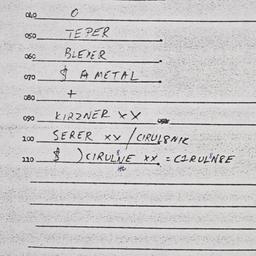 040 O
050 TEPER
060 BLEXER
070 $ A METAL
080 +
090 KIRZNER XX
100 SERER XX / CIRULSNIK
110 $ ) CIRULNE XX = CIRULNSE